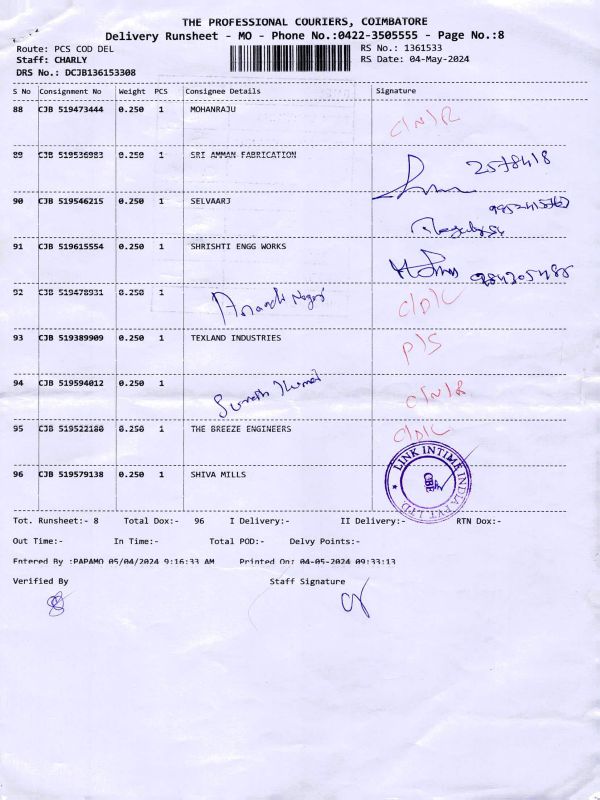 THE PROFESSIONAL COURIERS, COIMBATORE
Delivery Runsheet - MO - Phone No.:0422-3505555 - Page No.:8
Route: PCS COD DEL
RS No.: 1361533
Staff: CHARLY
RS Date: 04-May-2024
DRS No.: DCJB136153308
S No Consignment No Weight PCS Consignee Details Signature
88 CJB 519473444 0.250 1 MOHANRAJU C/N/R
89 CJB 519536983 0.250 1 SRI AMMAN FABRICATION
90 CJB 519546215 0.250 1 SELVAARJ
91 CJB 519615554 0.250 1 SHRISHTI ENGG WORKS
92 CJB 519478931 0.250 1 C/D/C
93 CJB 519389909 0.250 1 TEXLAND INDUSTRIES P/S
94 CJB 519594012 0.250 1 C/N/R
95 CJB 519522180 0.250 1 THE BREEZE ENGINEERS C/D/C
96 CJB 519579138 0.250 1 SHIVA MILLS
LINK INTIME INDIA PVT. LTD.
CBE
Tot. Runsheet:- 8 Total Dox:- 96 I Delivery:- II Delivery:- RTN Dox:-
Out Time:- In Time:- Total POD:- Delvy Points:-
Entered By :PAPAMO 05/04/2024 9:16:33 AM Printed On: 04-05-2024 09:33:13
Verified By Staff Signature